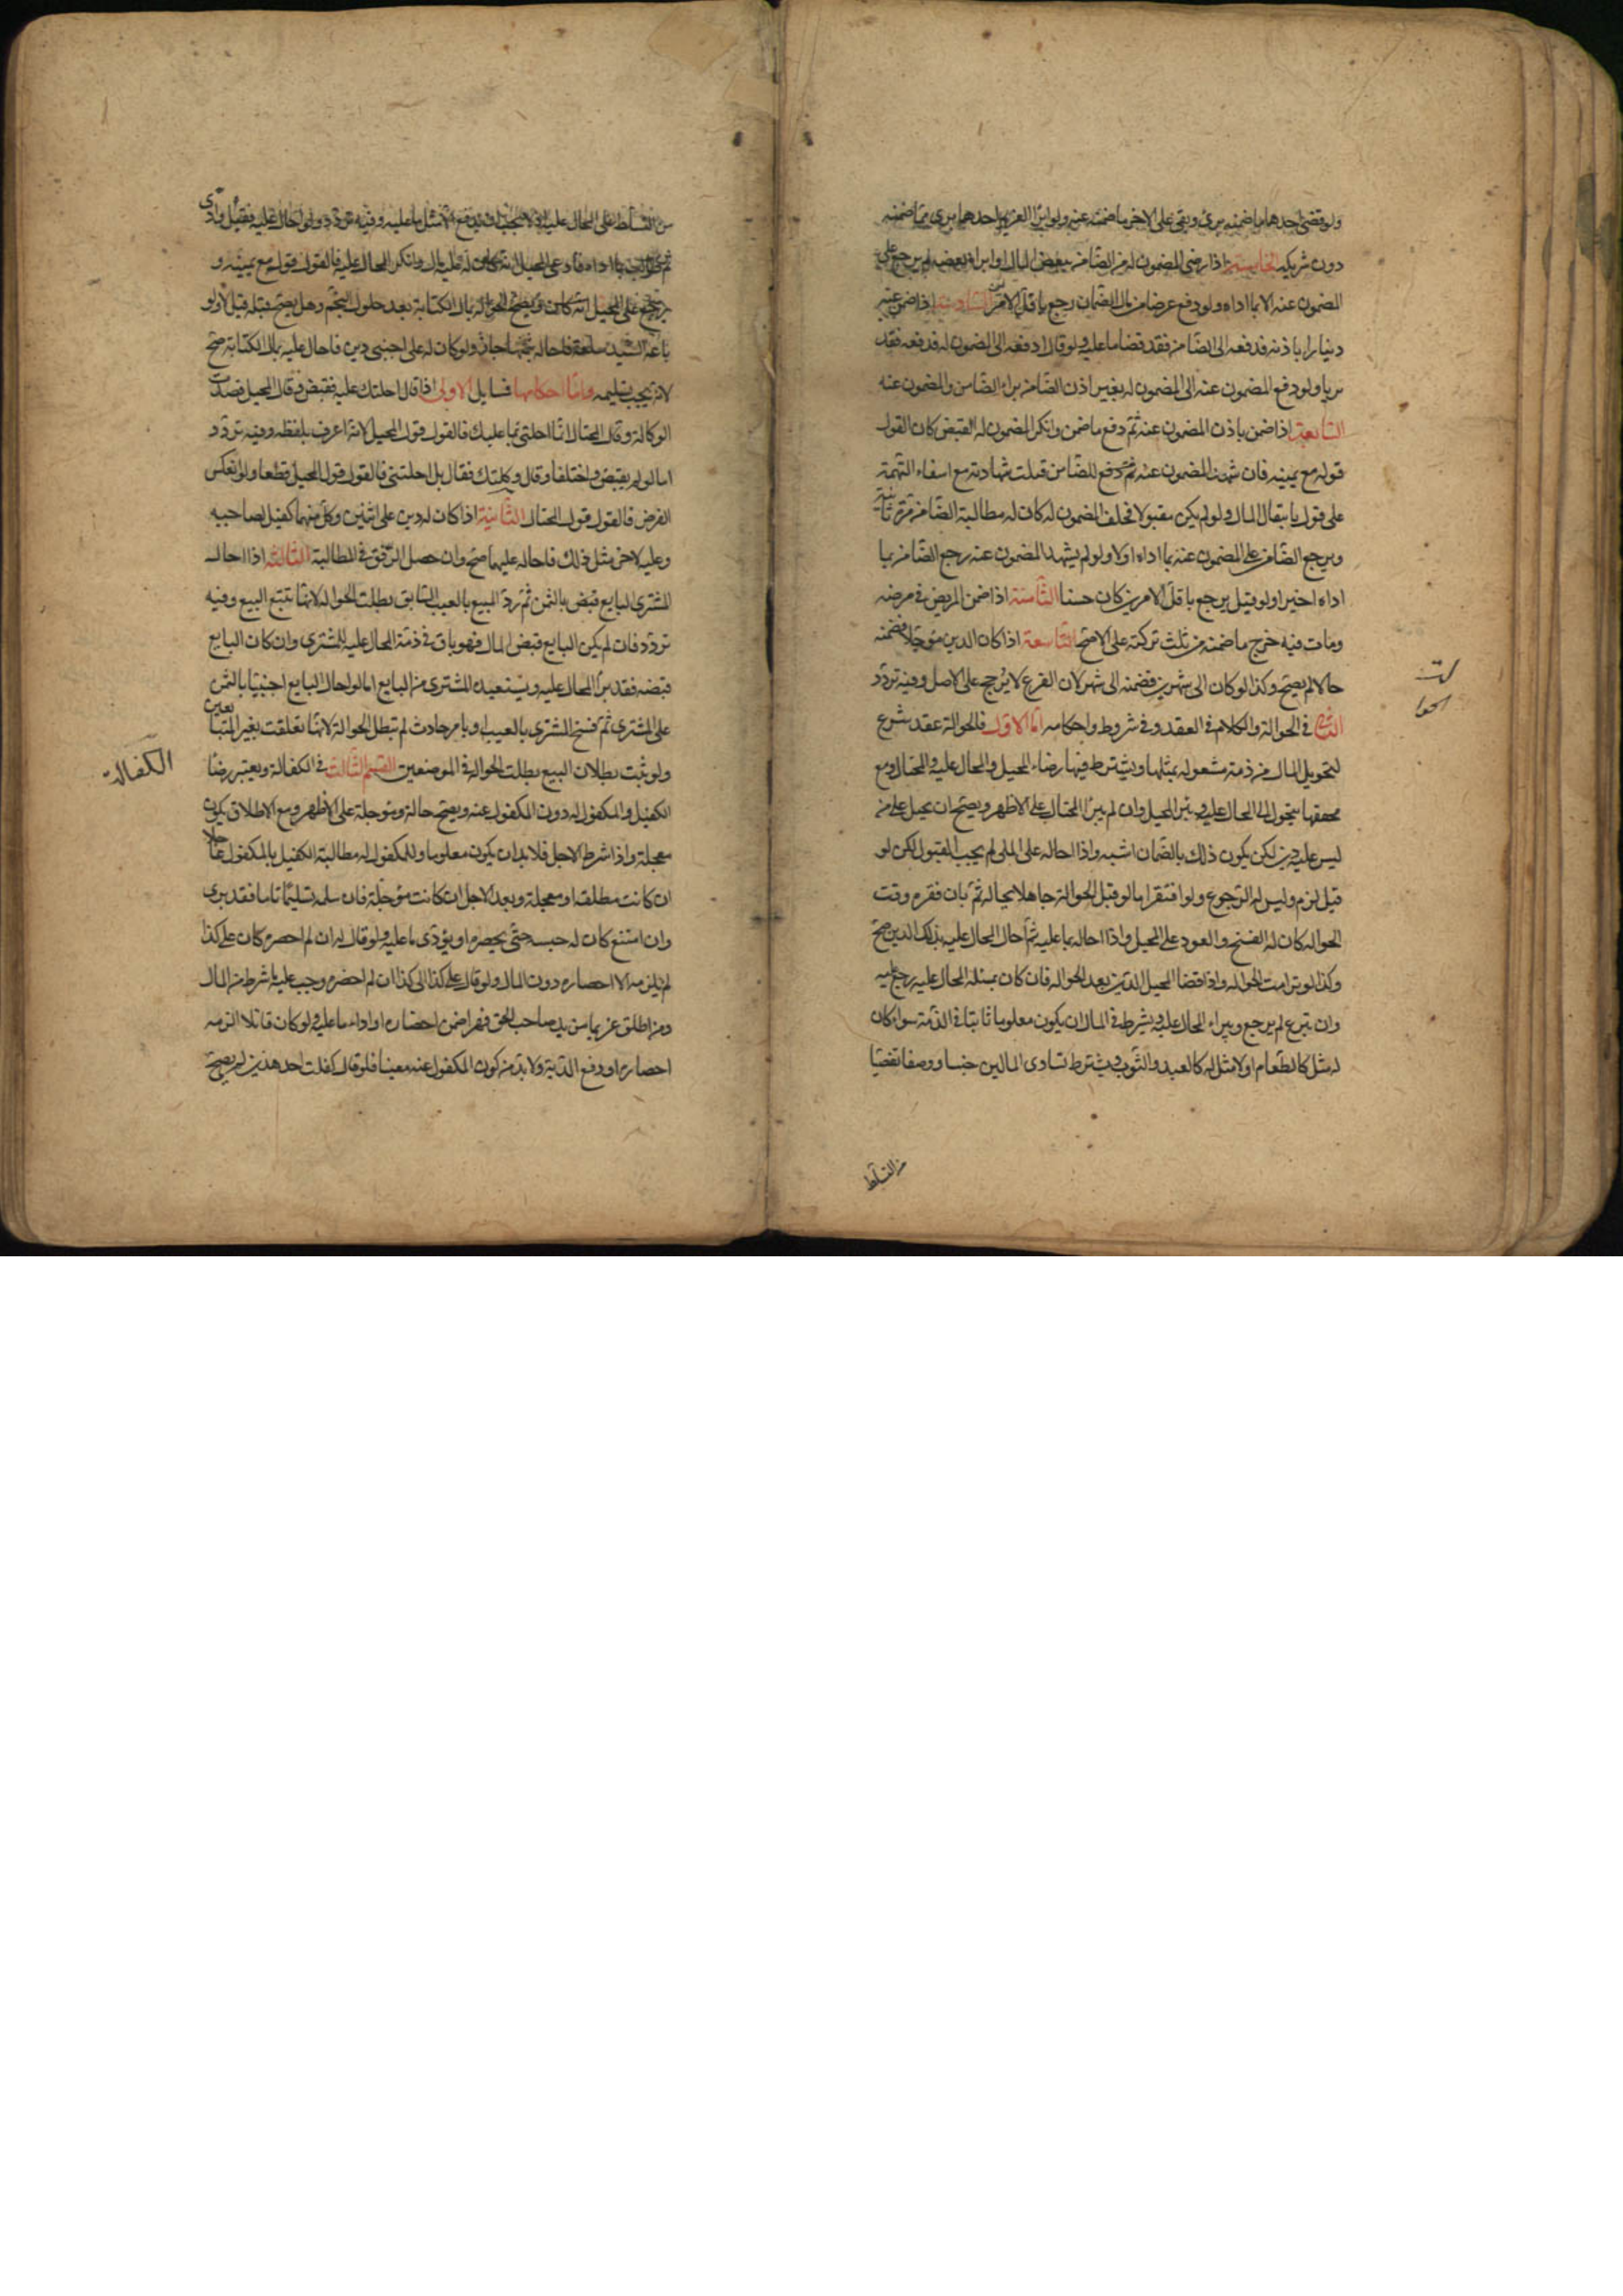 ولو قضى احدهما ما ضمنه برئ وبقى على الاخر ما ضمنه عنه ولو ابرأ الغريم احدهما برى مما ضمنه
دون شريكه الخامسة اذا رضى المضمون له من الضامن ببعض المال او ابراه من بعضه لم يرجع على
المضمون عنه الا بما اداه ولو دفع عرضا من مال الضمان رجع باقل الامرين السادسة اذا ضمن عنه
دينارا باذنه فدفعه الى الضامن فقد قضا ما عليه ولو قال ادفعه الى المضمون له فدفعه فقد
بريا ولو دفع المضمون عنه الى المضمون له بغير اذن الضامن براء الضامن والمضمون عنه
السابعة اذا ضمن باذن المضمون عنه ثم دفع ما ضمن وانكر المضمون له القبض كان القول
قوله مع يمينه فان شهد المضمون عنه ثم دفع للضامن قبلت شهادته مع انتفاء التهمة
على قول بانتقال المال ولو لم يكن مقبولا فحلف المضمون له كان له مطالبة الضامن مرة ثانية
ويرجع الضامن على المضمون عنه بما اداه اولا ولو لم يشهد المضمون عنه رجع الضامن بما
اداه اخيرا ولو قيل يرجع باقل الامرين كان حسنا الثامنة اذا ضمن المريض فى مرضه
ومات فيه خرج ما ضمنه من ثلث تركته على الاصح التاسعة اذا كان الدين موجلا فضمنه
حالا لم يصح وكذا لو كان الى شهرين فضمنه الى شهر لان الفرع لا يرجح على الاصل وفيه تردد
الثانى فى الحوالة والكلام فى العقد وفى شروطه واحكامه اما الاول فالحوالة عقد شرع
لتحويل المال من ذمة مشغوله بمثلها ويشترط فيها رضاء المحيل والمحال عليه والمحتال ومع
تحققها يتحول المال الى المحال عليه ويبرا المحيل وان لم يبرا المحتال على الاظهر ويصح ان يحيل على من
ليس عليه دين لكن يكون ذلك بالضمان اشبه واذا احاله على الملى لم يجب القبول لكن لو
قبل لزم وليس له الرجوع ولو افتقر اما لو قبل الحوالة جاهلا بحاله ثم بان فقره وقت
الحواله كان له الفسخ والعود على المحيل واذا احاله بما عليه ثم احال المحال عليه بذلك الدين صح
وكذا لو ترامت الحواله واذا قضا المحيل الدين بعد الحواله فان كان بمسئله المحال عليه رجع عليه
وان تبرع لم يرجع ويبراء المحال عليه ويشرط فى المال ان يكون معلوما ثابتا فى الذمة سواء كان
له مثل كالطعام او لا مثل له كالعبد والثوب ويشترط تساوى المالين جنسا ووصفا تفصيا
من التسلط
من التسلط على المحال عليه اذ لا يجب ان يدفع الا مثل ما عليه وفيه تردد ولو احال عليه فقبل وادى
ثم طالب بما اداه فادعى المحيل انه كان له عليه مال وانكر المحال عليه فالقول قوله مع يمينه و
يرجع على المحيل ويصح الحوالة بمال الكتابة بعد حلول النجم وهل يصح قبله قيل لا ولو
باعه السيد سلعة فاحاله بثمنها جاز ولو كان له على اجنبى دين فاحال عليه بمال الكتابة صح
لانه يجب تسليمه واما احكامها فمسايل الاولى اذا قال احلتك عليه فقبض فقال المحيل قصدت
الوكالة وقال المحتال انما احلتنى بما عليك فالقول قول المحيل لانه اعرف بلفظه وفيه تردد
اما لو لم يقبض واختلفا وقال وكلتك فقال بل احلتنى فالقول قول المحيل قطعا ولو انعكس
الفرض فالقول قول المحتال الثانية اذا كان له دين على اثنين وكل منهما كفيل لصاحبه
وعليه لاخر مثل ذلك فاحاله عليهما صح وان حصل الرفق فى المطالبة الثالثة اذا احاله
المشترى البايع بالثمن ثم رد المبيع بالعيب السابق بطلت الحواله لانها تتبع البيع وفيه
تردد فان لم يكن البايع قبض المال فهو باق فى ذمة المحال عليه للمشترى وان كان البايع
قبضه فقد برأ المحال عليه ويستعيده المشترى من البايع اما لو احال البايع اجنبيا بالثمن
على المشترى ثم فسخ المشترى بالعيب او بامر حادث لم تبطل الحوالة لانها تعلقت بغير المتبايعين
ولو ثبت بطلان البيع بطلت الحواله فى الموضعين القسم الثالث فى الكفالة ويعتبر رضا
الكفيل والمكفول له دون المكفول عنه ويصح حالة وموجلة على الاظهر ومع الاطلاق يكون
معجلة واذا شرط الاجل فلا بد ان يكون معلوما وللمكفول له مطالبة الكفيل بالمكفول عاجلا
ان كانت مطلقه او معجلة وبعد الاجل ان كانت موجلة فان سلمه تسليما تاما فقد برى
وان امتنع كان له حبسه حتى يحضره او يؤدى ما عليه ولو قال ان لم احضره كان على كذا
لم يلزمه الا احضاره دون المال ولو قال على كذا الى كذا ان لم احضره وجب عليه ما شرط من المال
ومن اطلق غريما من يد صاحب الحق قهرا ضمن احضاره او اداء ما عليه ولو كان قاتلا الزمه
احضاره او دفع الدية ولا بد من كون المكفول عنه معينا فلو قال كفلت احد هذين لم يصح
الكفالة